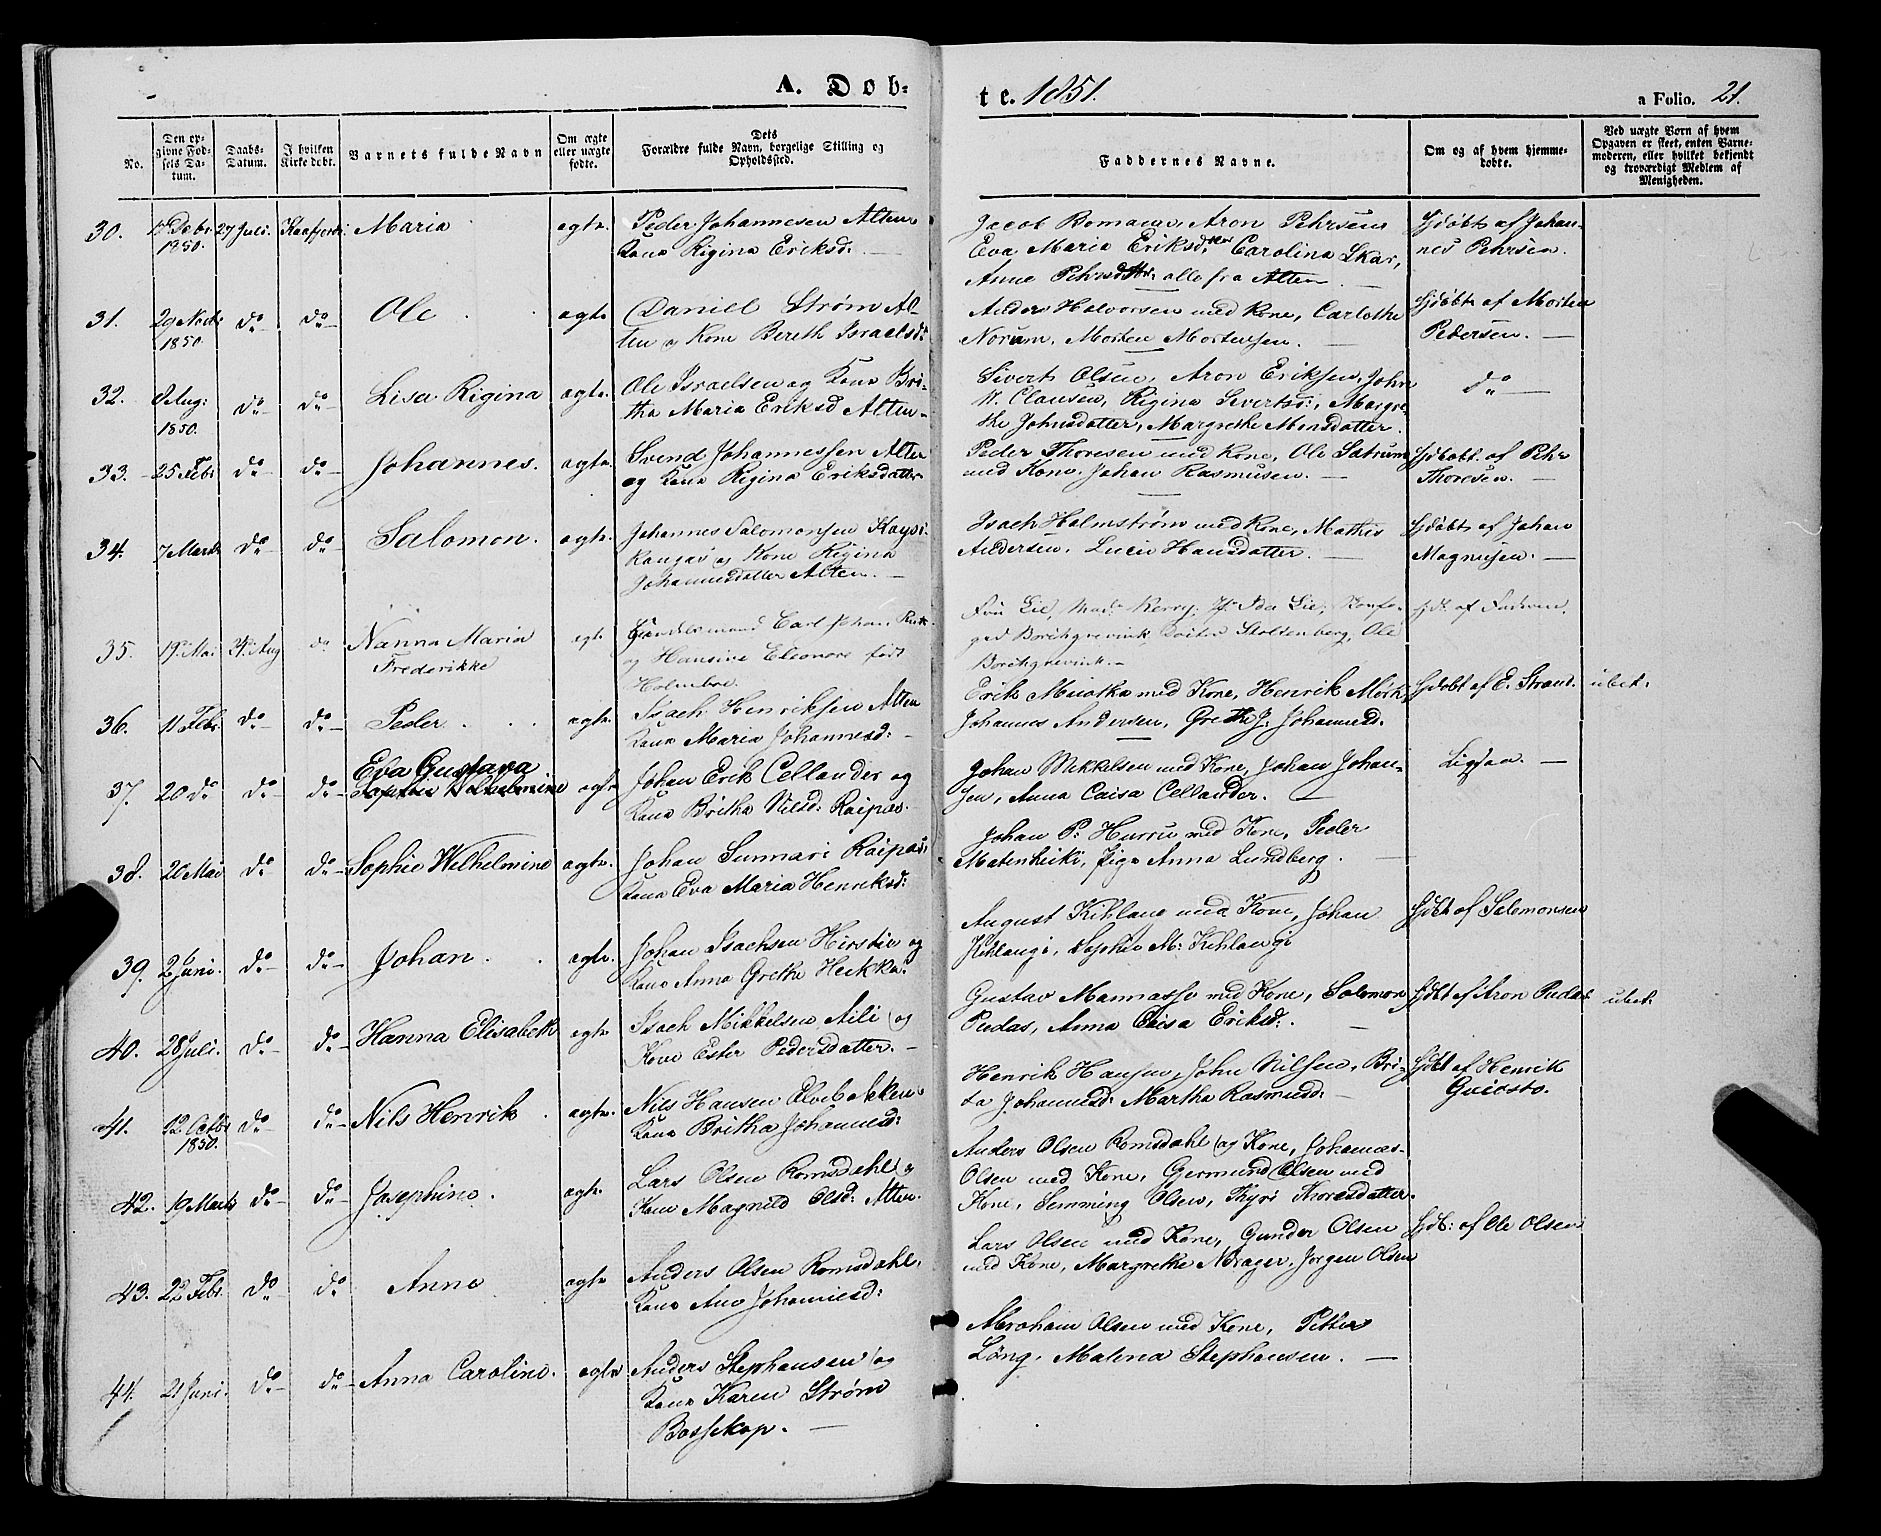 A. Døb-
te. 1851.
a Folio. 21.
No.
Den opgivne Fødsels Datum.
Daabs-Datum.
I hvilken Kirke døbt.
Barnets fulde Navn
Om ægte eller uægte fødte.
Dets Forældre fulde Navn, borgelige Stilling og Opholdssted.
Faddernes Navne.
Om og af hvem hjemmedøbte.
Ved uægte Børn af hvem Opgaven er skeet, enten Barnemoderen, eller hvilket bekjendt og troværdigt Medlem af Menigheden.
30. 1850. 27 Juli. Kaafjord. Maria ægte. Peder Johannesen Alten
Kone Rigina Eriksd:
Jacob Bomann, Aron Pehrsen
Eva Maria Eriksd, Carolina Skar,
Anne alle fra Alten
Hjdøbt af Johan-
nes Pehrsen.
31. 29 1850. do do Ole ægte Daniel Strøm Al-
ten og Kone Bereth Israelsd:
Anders Halvorsen med Kone, Carlothe
Norum, Morten Mortensen.
Hjdøbt af Morten
Pedersen.
32. Aug: 1850. do do Lisa Rigina ægte. Ole Israelsen og Kone Bri-
tha Maria Eriksd Alten
Sivert Olsen, Aron Eriksen, John
Clausen, Rigina Sivertsd:, Margre-
the Johnsdatter, Margrethe Monsdatter.
do
33. 25 Febr do do Johannes. ægte. Svend Johannessen Alten
og Kone Rigina Eriksdatter
Peder Thoresen med Kone, Ole Satrum
med Kone, Johan Rasmusen.
Hjdøbt. af Pehr
Thoresen.
34. 7 Marts do do Salomon. ægte. Johannes Salomonsen
og Kone Rigina
Johannesdatter Alten.
Isach Holmstrøm med Kone, Mathis
Andersen, Lucie Hansdatter.
Hjdøbt af Johan
Magnusen.
35. 19 Mai Aug do Nanna Maria
Frederikke
egte Handelsmand Carl Johan
og Hansine Eleonore født
Fru Lie, Mad: Ida Lie,
Borchgrevink, Doctor Stoltenberg, Ole
Borchgrevink.
hjdt. af Faderen.
36. 11 Febr. do do Peder ægte Isach Henriksen Alten
Kone Maria Johannesd:
Erik Muotka med Kone, Henrik Mørk,
Johannes Andersen, Grethe J. Johannesd:
Hjdøbt af E. Strand. ubet:
37. 20 do do do Eva Gustava
ægte Johan Erik Cellander og
Kone Britha Nilsd: Raipas.
Johan Mikkelsen med Kone, Johan Johan-
sen, Anna Caisa Cellander.
Ligsaa.
38. 20 Mai do do Sophie Wilhelmine ægte. Johan Sunnari Raipas,
Kone Eva Maria Henriksd:
Johan P. Hurru med Kone, Peder
Matenheiki, Pige Anna Lundberg.
39. 2 Juni. do do Johan. ægte. Johan Isachsen og
Kone Anna Grethe Heikka.
August Kihlang med Kone, Johan
Kihlangi, Sophie M: Kihlangi
Hjdbt af Salomonsen
40. 28 Juli. do do Hanna Elisabeth egte. Isach Mikkelsen Aili og
Kone Ester Pedersdatter.
Gustav Mannasse med Kone, Salomon
Pudas, Anna Caisa Eriksd:.
Hjdbt af Aron Pudas ubet:
41. 12 Octbr 1850. do do Nils Henrik ægte. Nils Hansen Elvebakken
Kone Britha Johannesd:
Henrik Hansen, John Nilsen, Bri-
ta Johannesd: Martha Rasmusd:
Hjdbt af Henrik
42. 19 Marts do do Josephine. ægte. Lars Olsen Romsdahl og
Kone Magnild Olsd: Alten.
Anders Olsen Romsdahl og Kone, Johannes
Olsen med Kone, Germund Olsen med
Kone, Semming Olsen, Kyri Thoresdatter.
43. 22 Febr. do do Anne ægte Anders Olsen Romsdahl,
Kone Ane Johannesd:
Lars Olsen med Kone, Gunder Olsen
med Kone, Margrethe Jørgen Olsen
Hjdbt: af Ole Olsen
44. 21 Juni. do do Anna Caroline. ægte Anders Stephansen og
Kone Karen Strøm
Bossekop.
Abraham Olsen med Kone, Petter
Løng, Malena Stephansen.